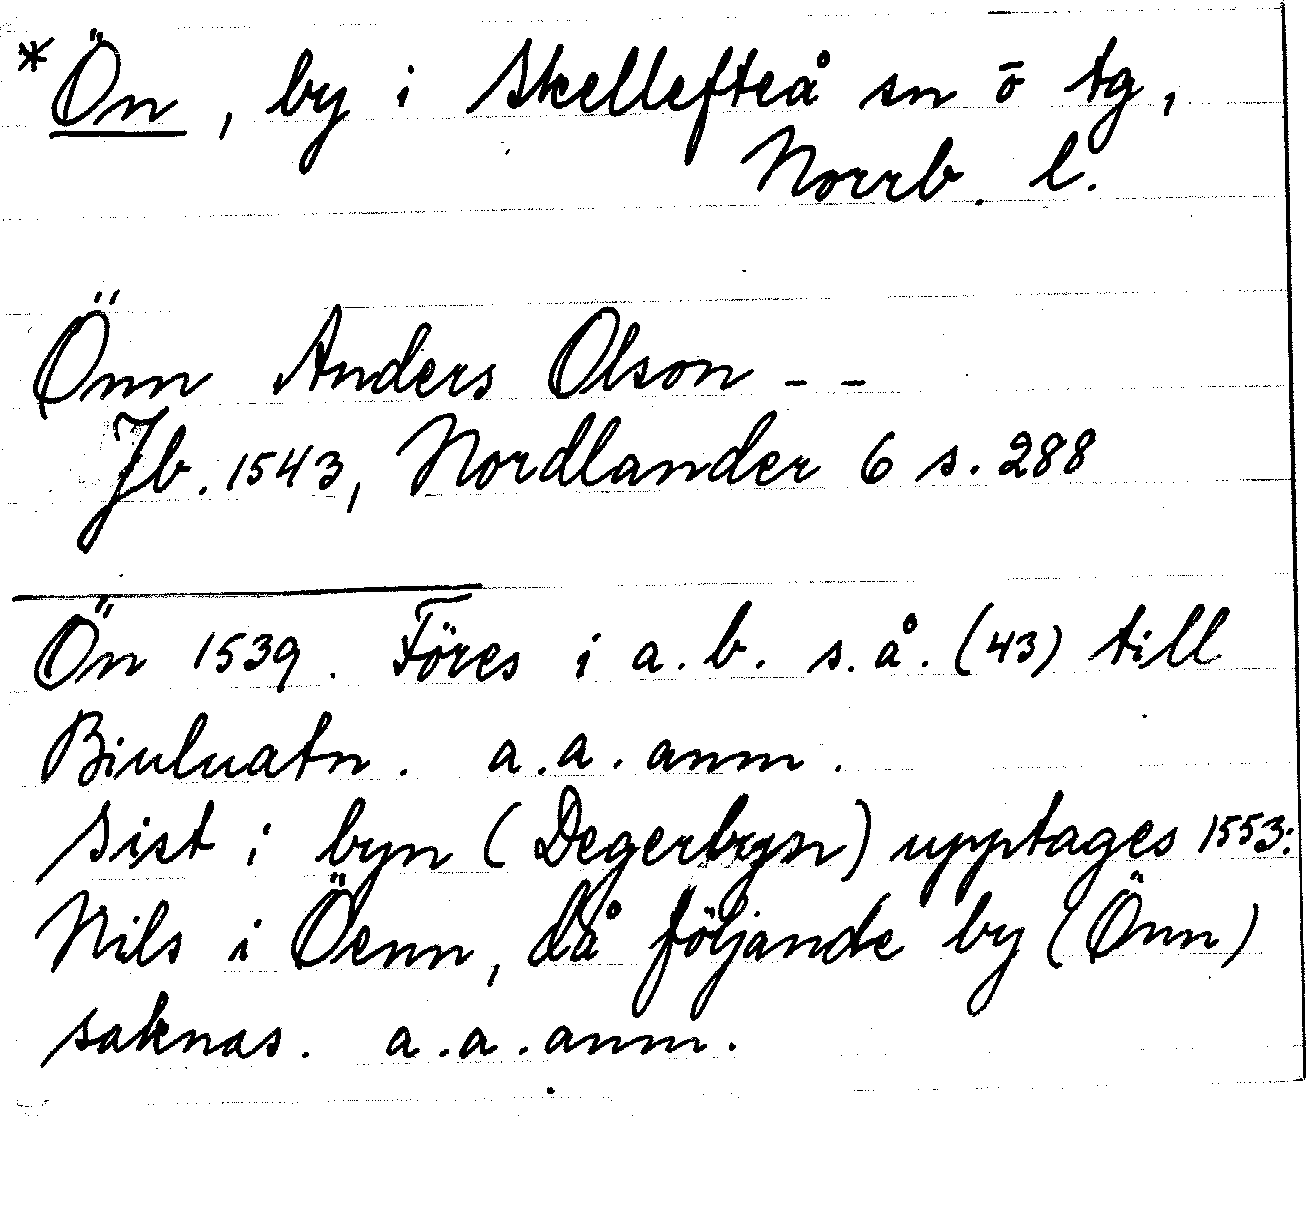 * Ön, by i Skellefteå sn ō tg,
Norrb. l.
Önn Anders Olson - -
Jb. 1543, Nordlander 6 s. 288
Ön 1539. Föres i a.b. s.å. (43) till
Biuluatn. a.a. anm.
Sist i byn (Degerbyn) upptages 1553:
Nils i Öenn, då följande by (Önn)
saknas. a.a. anm.